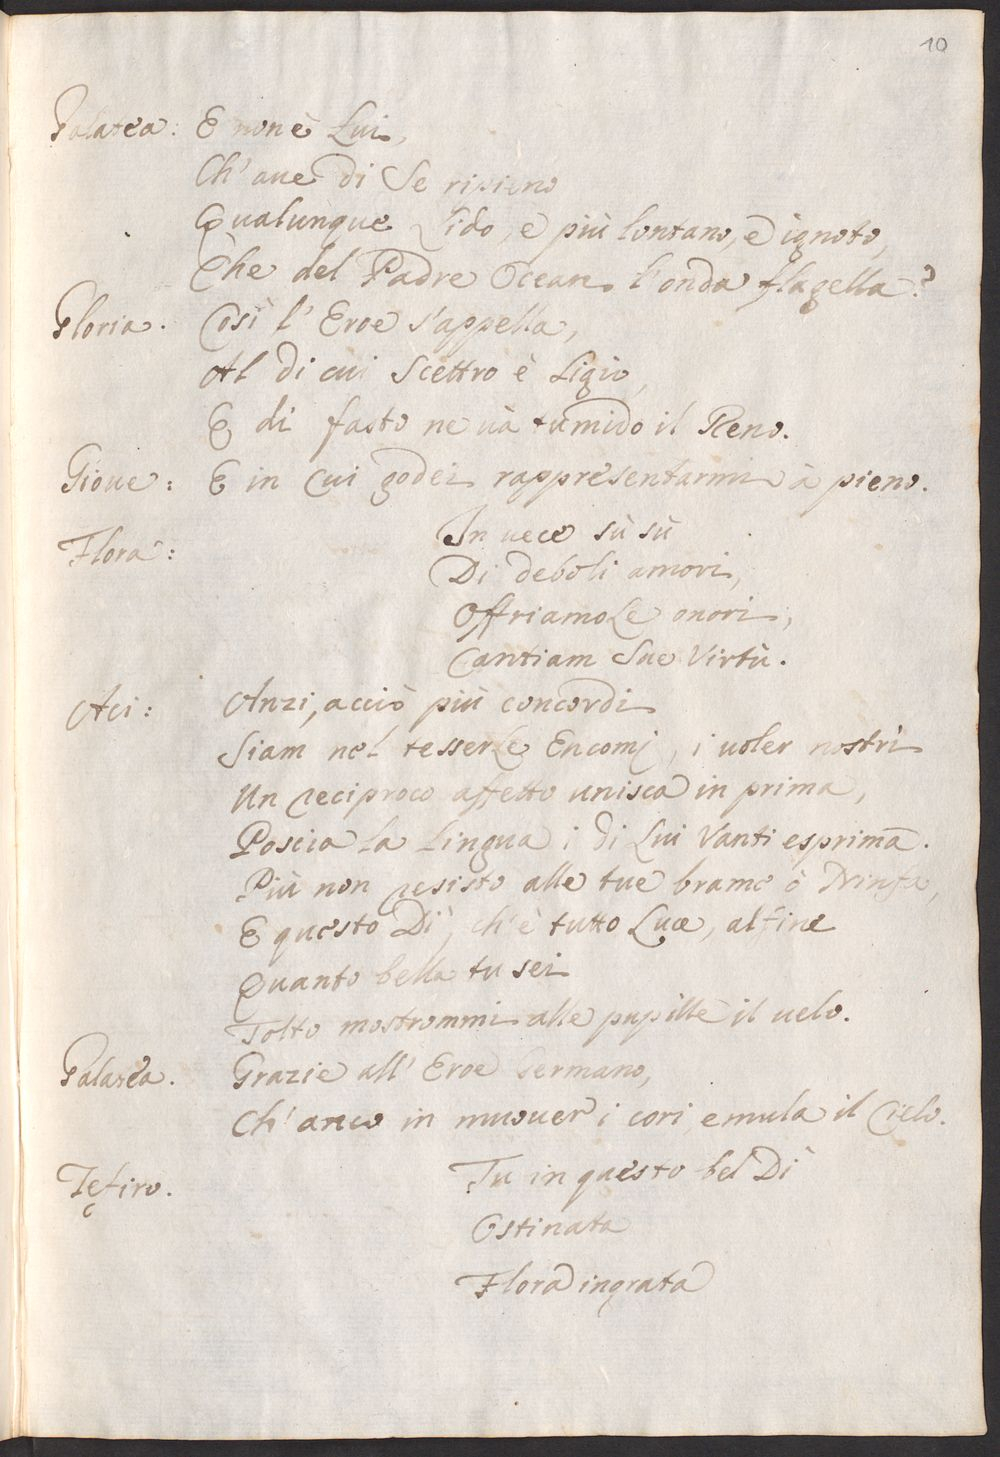 10
Galatea: E non è Lui,
Ch' aue di Se ripieno
Qualunque Lido, e più lontano, e ignoto,
Che del Padre Ocean l'onda flagella?
Gloria. Così l' Eroe s'appella,
Al di cui Scettro è Ligio,
E di fasto ne uà tumido il Reno.
Gioue: E in Cui godei rappresentarmi à pieno.
Flora: In uece sù sù
Di deboli amori,
OffriamoLe onori,
Cantiam Sue Virtù.
Aci: Anzi, acciò più concordi
Siam nel tesserLe Encomj, i uoler nostri
Un reciproco affetto unisca in prima,
Poscia la Lingua i di Lui Vanti esprima.
Più non resisto alle tue brame ò Ninfa,
E questo Dì, ch'è tutto Luce, alfine
Quanto bella tu sei
Tolto mostrommi alle pupille il uelo.
Galatea. Grazie all' Eroe Germano,
Ch' anco in muouer i cori emula il Cielo.
Zefiro. Tu in questo bel Dì
Ostinata
Flora ingrata